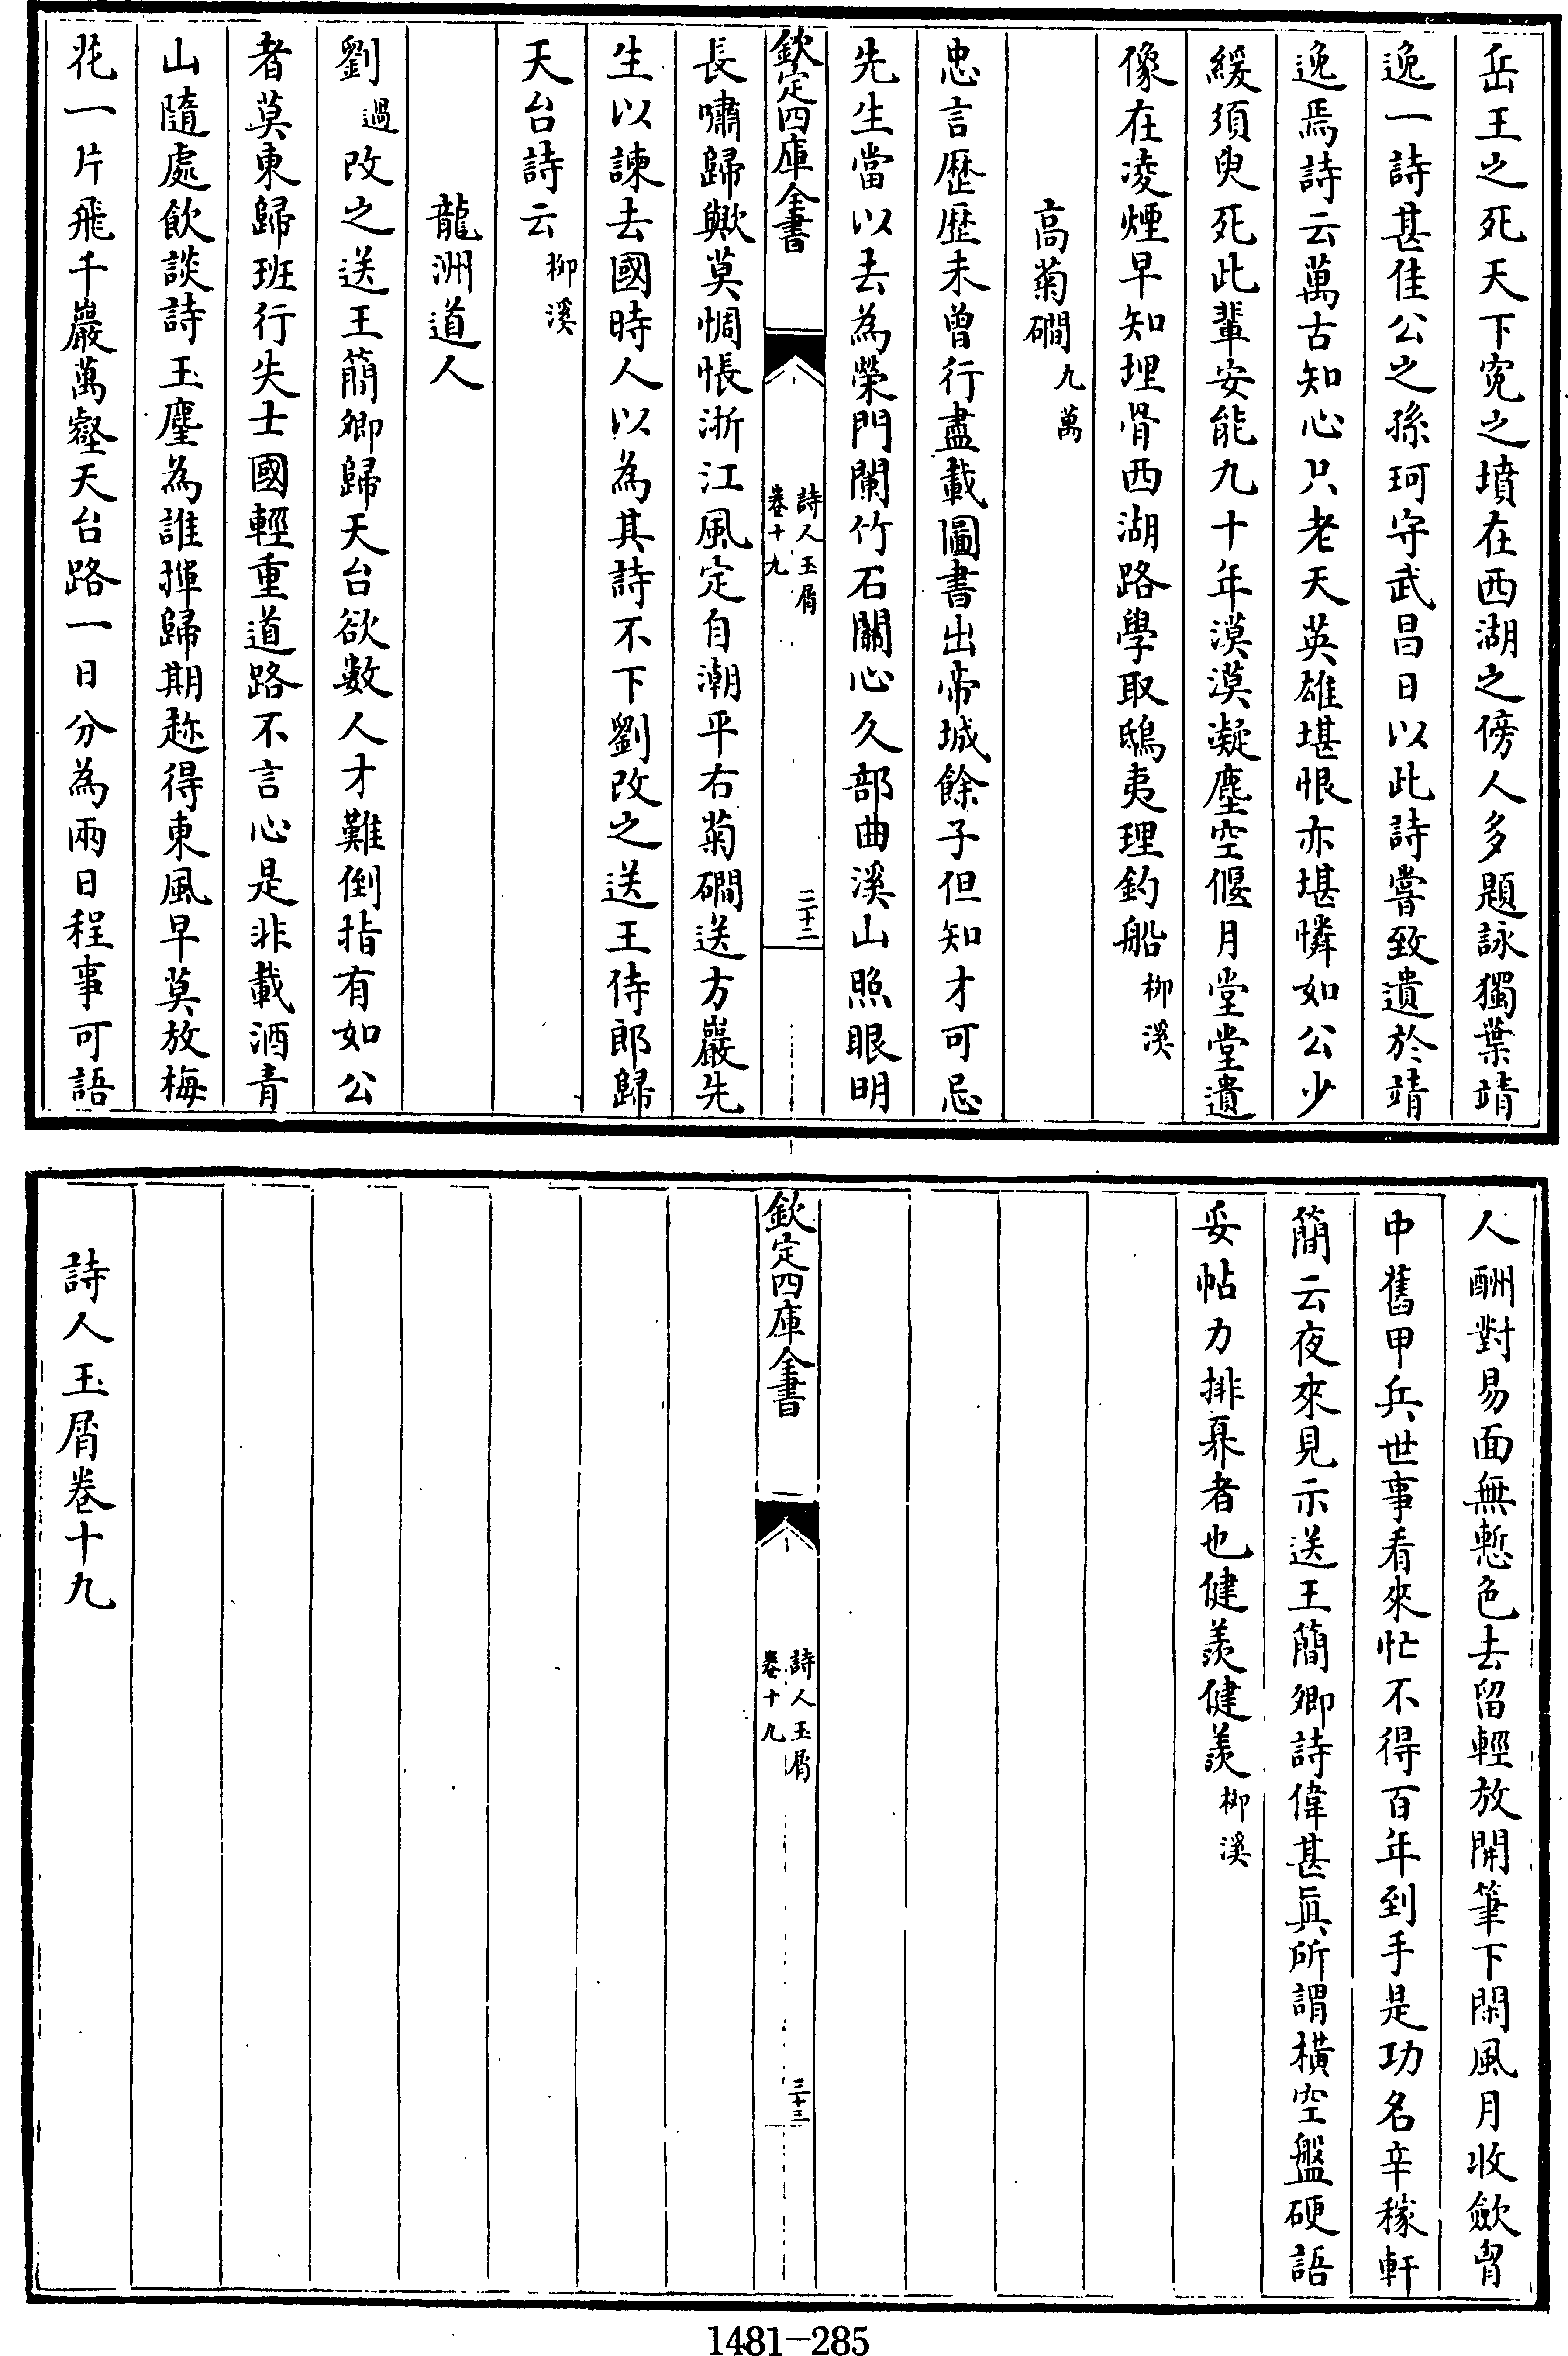 岳王之死天下寃之墳在西湖之傍人多題詠獨葉靖
逸一詩甚佳公之孫珂守武昌日以此詩嘗致遺於靖
逸焉詩云萬古知心只老天英雄堪恨亦堪憐如公少
緩須臾死此輩安能九十年漠漠凝塵空偃月堂堂遺
像在凌煙早知埋骨西湖路學取鴟夷理釣船柳溪
高菊磵九萬
忠言歷歷未曾行盡載圖書出帝城餘子但知才可忌
先生當以去為榮門闌竹石關心久部曲溪山照眼明
欽定四庫全書
詩人玉屑
卷十九
二十二
長嘯歸歟莫惆悵浙江風定自潮平右菊磵送方巖先
生以諫去國時人以為其詩不下劉改之送王侍郎歸
天台詩云柳溪
龍洲道人
劉過改之送王簡卿歸天台欲數人才難倒指有如公
者莫東歸班行失士國輕重道路不言心是非載酒青
山隨處飲談詩玉麈為誰揮歸期趂得東風早莫放梅
花一片飛千巖萬壑天台路一日分為兩日程事可語
人酬對易面無慙色去留輕放開筆下閑風月收斂胷
中舊甲兵世事看來忙不得百年到手是功名辛稼軒
簡云夜來見示送王簡卿詩偉甚眞所謂橫空盤硬語
妥帖力排奡者也健羨健羨柳溪
欽定四庫全書
詩人玉屑
卷十九
二十三
詩人玉屑卷十九
1481-285